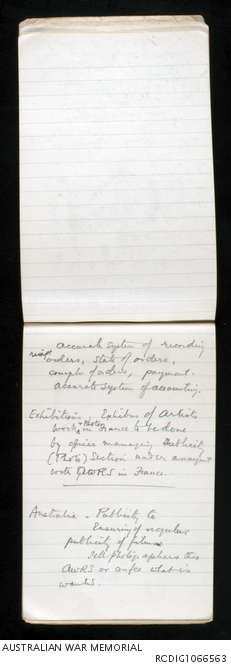 accurate system of recording
orders, state of orders,
compln of orders, payment.
accurate system of accounting.
Exhibitions. Exhibns of Artists
work & Photos in France to be done
by officer managing Publicity
(Photo) Section under arrangmt
with AWRS in France.
Australia - Publicity to
Ensuring of regular
publicity of films.
Sell photographs thro
AWRS or confce what is
wanted.
AUSTRALIAN WAR MEMORIAL
RCDIG1066563